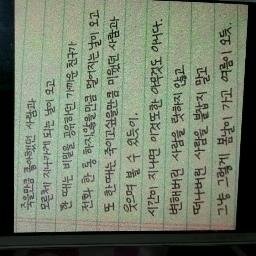 죽을만큼 좋아했던 사람과
모른체 지나가게 되는 날이 오고
한 때는 비밀을 공유하던 가까운 친구가
전화 한 통 하지 않을만큼 멀어지는 날이 오고
또 한때는 죽이고 싶을만큼 미웠던 사람과
웃으며 볼 수 있듯이.
시간이 지나면 이것 또한 아무것도 아니다.
변해버린 사람을 탓하지 않고
떠나버린 사람을 붙잡지 말고
그냥 그렇게 봄날이 가고 여름이 오듯.